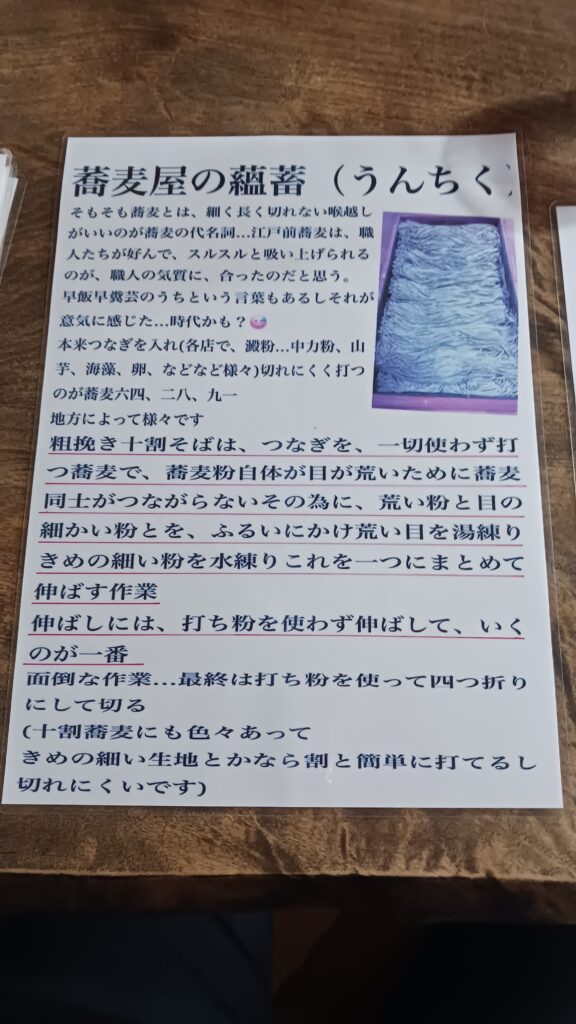 蕎麦屋の蘊蓄（うんちく）
そもそも蕎麦とは、細く長く切れない喉越し
がいいのが蕎麦の代名詞…江戸前蕎麦は、職
人たちが好んで、スルスルと吸い上げられる
のが、職人の気質に、合ったのだと思う。
早飯早糞芸のうちという言葉もあるしそれが
意気に感じた…時代かも？
本来つなぎを入れ(各店で、澱粉…中力粉、山
芋、海藻、卵、などなど様々)切れにくく打つ
のが蕎麦六四、二八、九一
地方によって様々です
粗挽き十割そばは、つなぎを、一切使わず打
つ蕎麦で、蕎麦粉自体が目が荒いために蕎麦
同士がつながらないその為に、荒い粉と目の
細かい粉とを、ふるいにかけ荒い目を湯練り
きめの細い粉を水練りこれを一つにまとめて
伸ばす作業
伸ばしには、打ち粉を使わず伸ばして、いく
のが一番
面倒な作業…最終は打ち粉を使って四つ折り
にして切る
(十割蕎麦にも色々あって
きめの細い生地とかなら割と簡単に打てるし
切れにくいです)